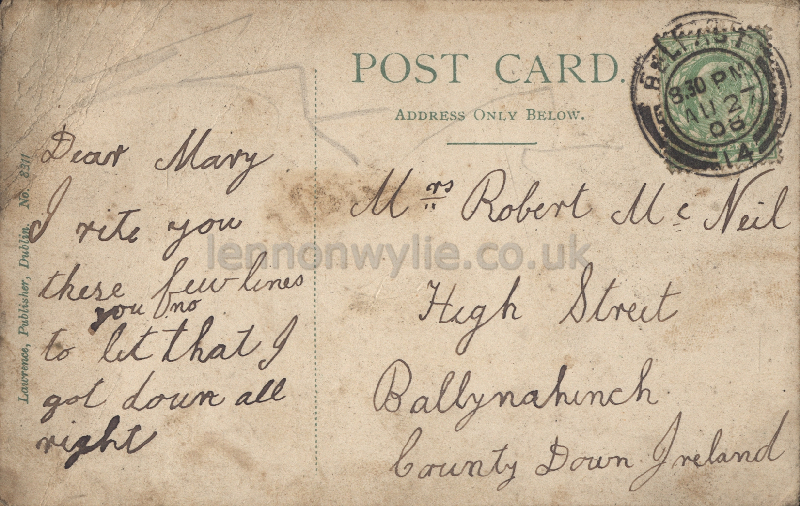 POST CARD.
ADDRESS ONLY BELOW.
BELFAST
8.30 PM
AU 27
06
14
Lawrence, Publisher, Dublin. No. 8311
Dear Mary
I rite you
these few lines
you no
to let that I
got down all
right
Mrs Robert Mc Neil
High Street
Ballynahinch
County Down Ireland
lennonwylie.co.uk